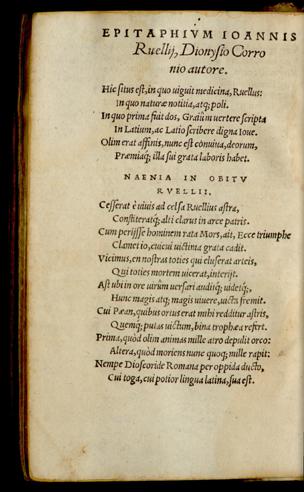 EPITAPHIVM IOANNIS
Ruellij, Dionysio Corro
nio autore.
Hic situs est, in quo uiguit medicina, Ruellus:
In quo naturæ notitia, atq; poli.
In quo prima fuit dos, Graiûm uertere scripta
In Latium, ac Latio scribere digna Ioue.
Olim erat affinis, nunc est conuiua, deorum,
Præmiaq; illa sui grata laboris habet.
NAENIA IN OBITV
RVELLII.
Cesserat è uiuis ad celsa Ruellius astra,
Constiteratq; alti clarus in arce patris.
Cum perijsse hominem rata Mors, ait, Ecce triumphe
Clamet io, cui uictima grata cadit.
Vicimus, en nostras toties qui eluserat arteis,
Qui toties mortem uicerat, interijt.
Ast ubi in ore uirûm uersari audiitq; uidetq;,
Hunc magis atq; magis uiuere, uicta fremit.
Cui Pæan, quibus orus erat mihi redditur astris,
Quemq; putas uictum, bina trophæa refert.
Prima, quòd olim animas mille atro depulit orco:
Altera, quòd moriens nunc quoq; mille rapit:
Nempe Dioscoride Romana per oppida ducto,
Cui toga, cui potior lingua latina, sua est.